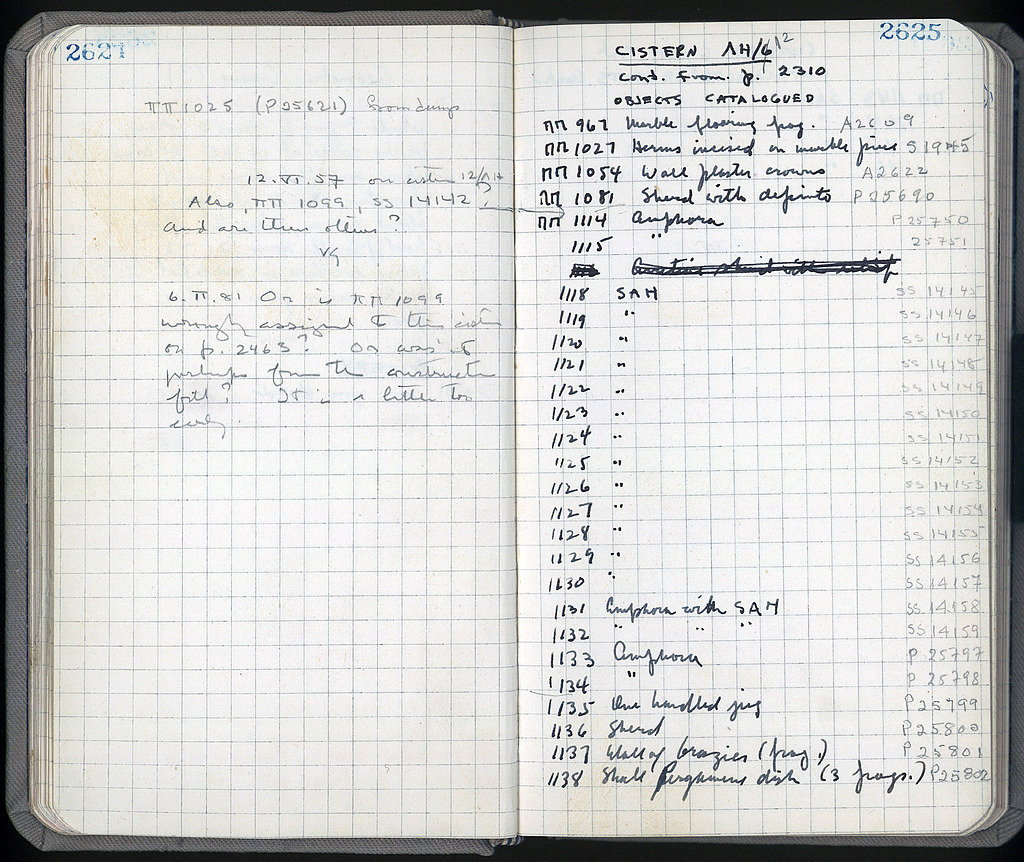 2621
ΠΠ 1025 (P25621) from dump
12.VI.57 on cistern 12/ΛΗ
Also, ΠΠ 1099, SS 14142,
and are there others?
VG
6.II.81 Or is ΠΠ 1099
wrongly assigned to this cistern
on p. 2463? Or was it
perhaps from the construction
fill? It is a little too
early.
2625
CISTERN ΛΗ/6 12
Cont. from p. 2310
OBJECTS CATALOGUED
ΠΠ 967 Marble flooring frag. A2609
ΠΠ 1027 Herms incised on marble piece S 1945
ΠΠ 1054 Wall plaster crowns A2622
ΠΠ 1081 Sherd with depinto P25690
ΠΠ 1114 Amphora P25750
1115 " 25751
1118 SAH SS 14145
1119 " SS 14146
1120 " SS 14147
1121 " SS 14148
1122 " SS 14149
1123 " SS 14150
1124 " SS 14151
1125 " SS 14152
1126 " SS 14153
1127 " SS 14154
1128 " SS 14155
1129 " SS 14156
1130 " SS 14157
1131 Amphora with SAH SS 14158
1132 " " " SS 14159
1133 Amphora P 25797
1134 " P 25798
1135 One handled jug P25799
1136 Sherd P25800
1137 Wall of brazier (frag.) P25801
1138 Small Pergamene dish (3 frags.) P25802